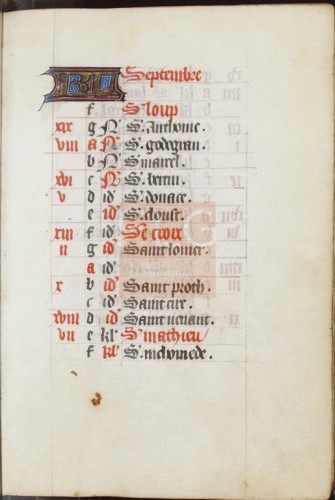 KL Septembre
f S. loup
xix g N S. anthoine.
viii a N S. godegran.
b N S. marcel.
xvi c N S. bertin.
v d id S. donace.
e id S. cloust.
xiii f id Ste croix
ii g id Saint lomer.
a id
x b id Saint proth.
c id Saint cire.
xviii d id Saint uerant.
vii e kl S. mathieu
f kl S. nichomede.